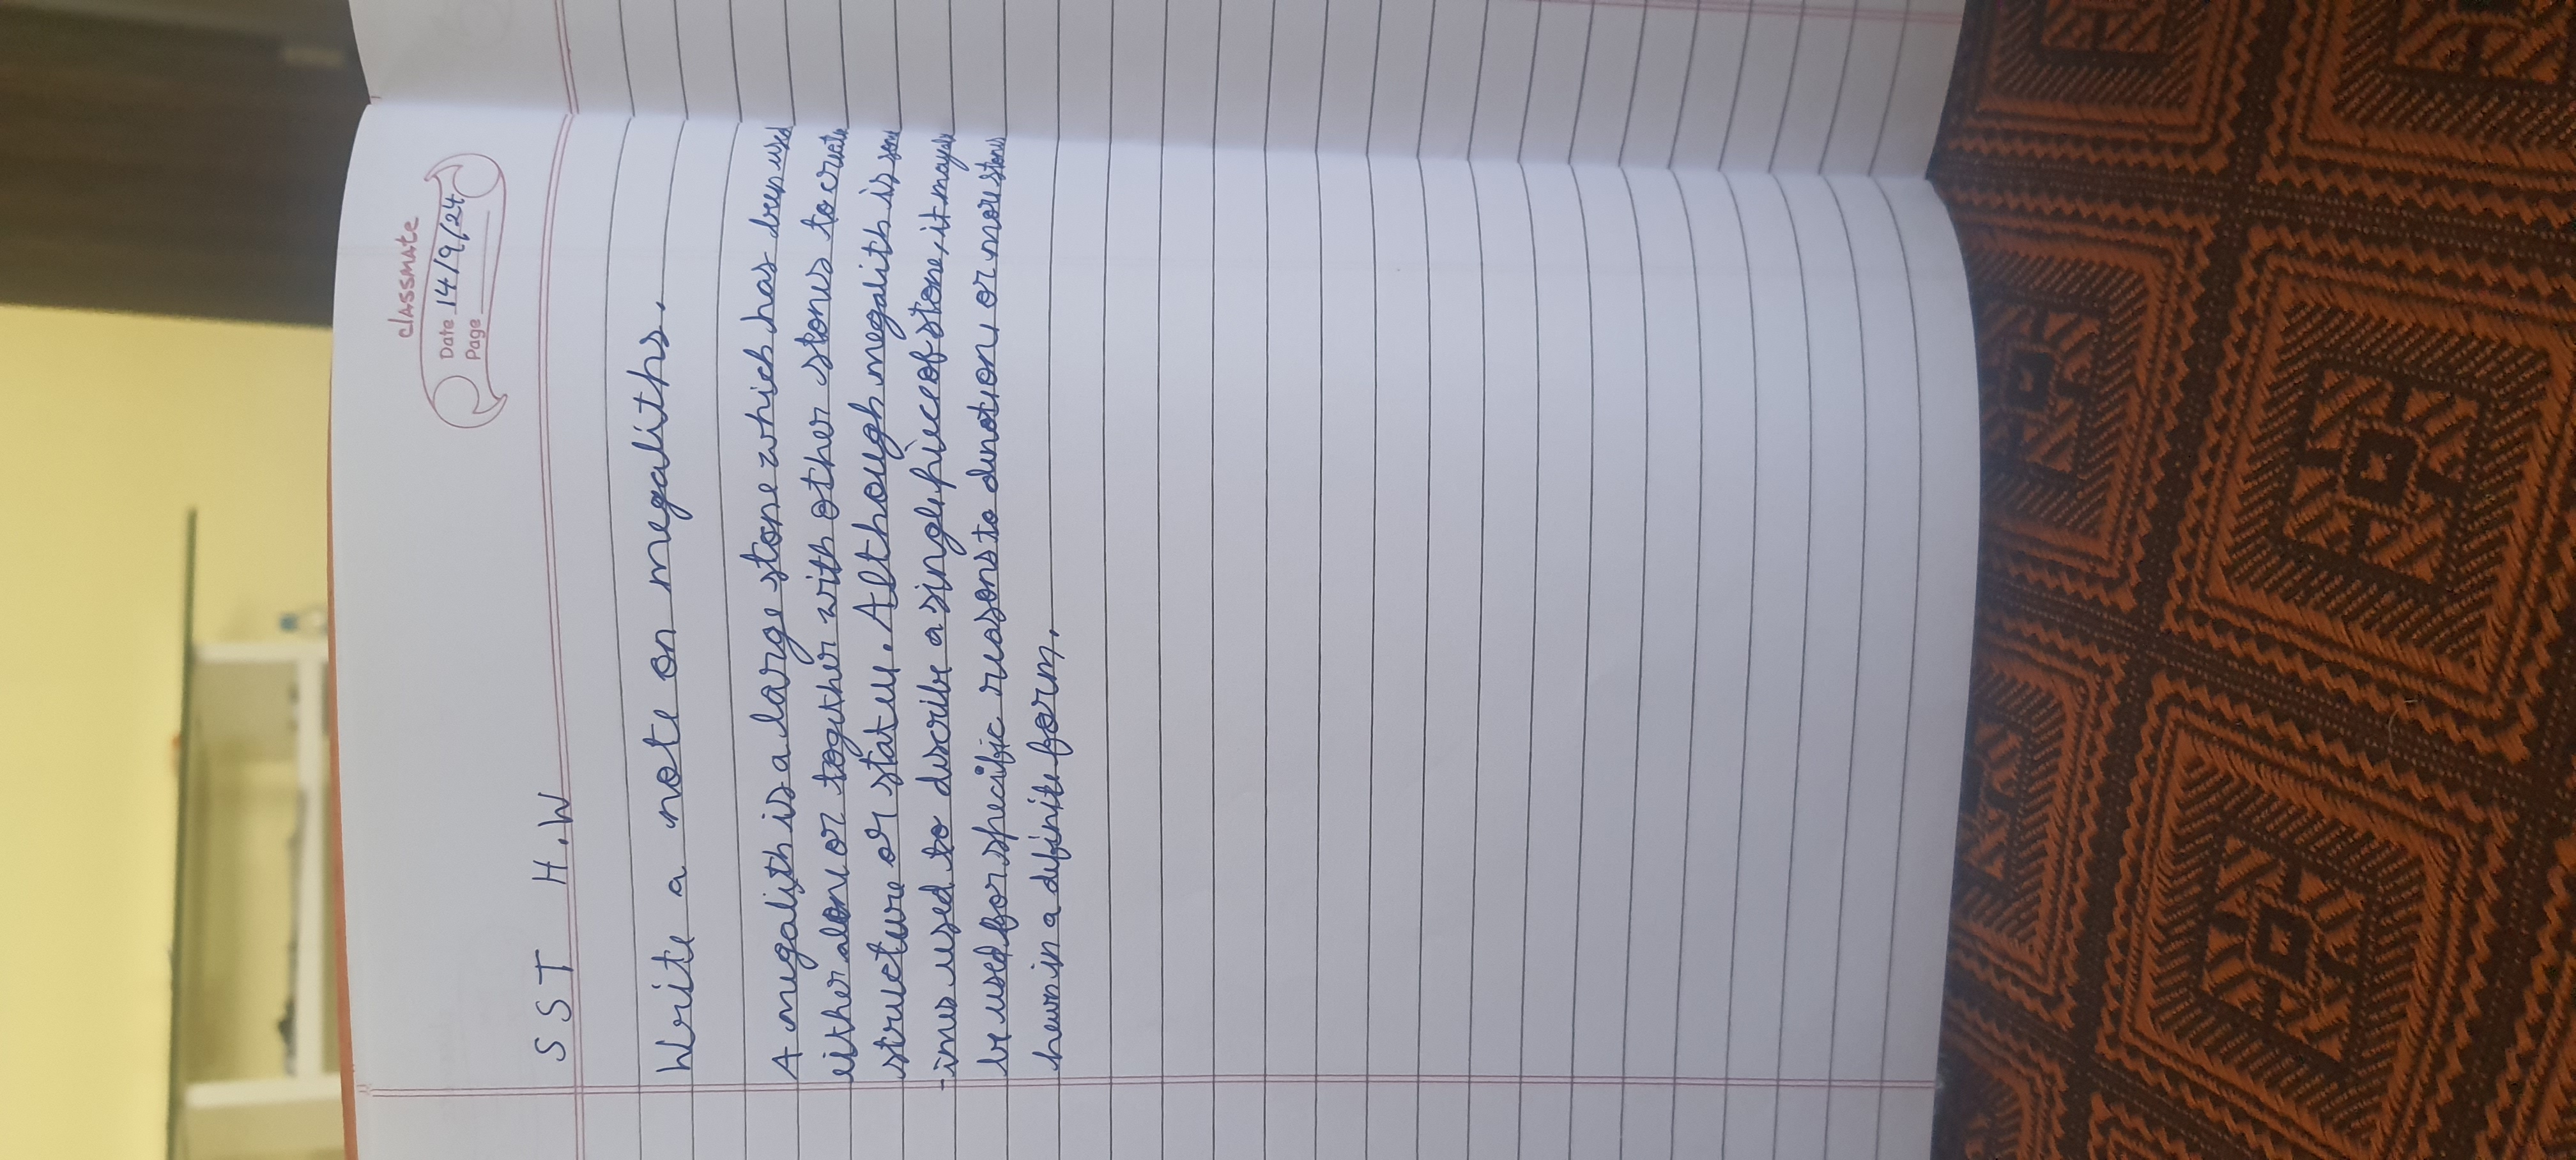 classmate
Date 14/9/24
Page
SST H.W
Write a note on megaliths.
A megalith is a large stone which has been used
either alone or together with other stones to create
structure or statue. Although megalith is some
-imes used to describe a single piece of stone, it may
be used for specific reasons to denotion, or more stones
hewn in a definite form.